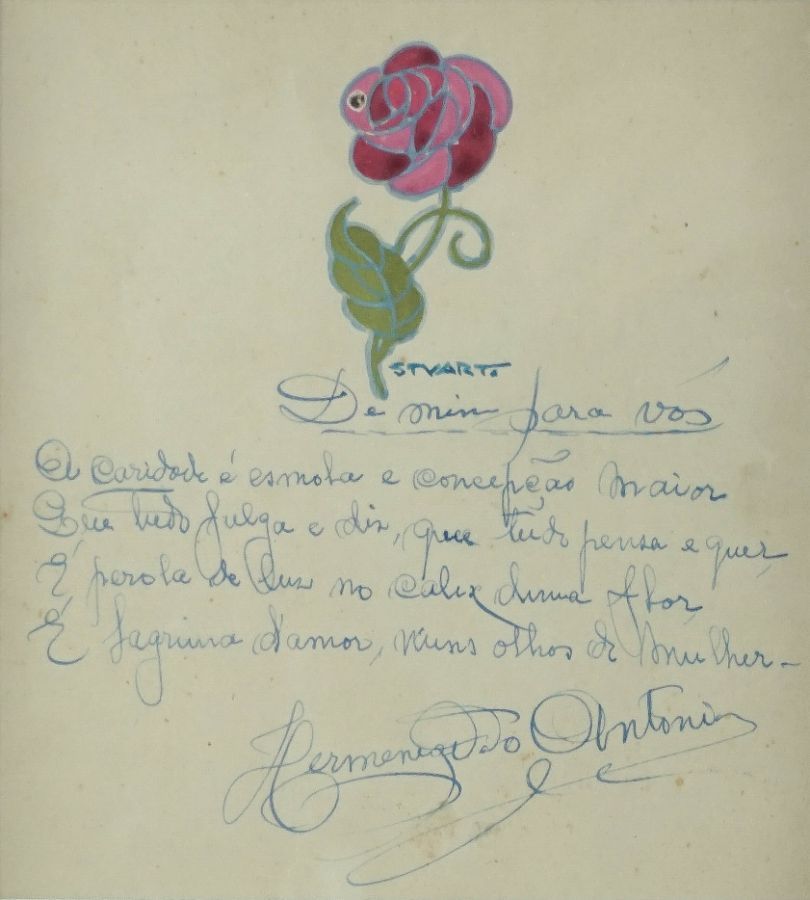 STUART.
De mim para vós
A caridade é esmola e concepção maior
Que tudo julga e diz, que tudo pensa e quer,
É perola de luz no calix duma flor,
É lagrima d'amor, nuns olhos de mulher -
Hermenegildo Antonio